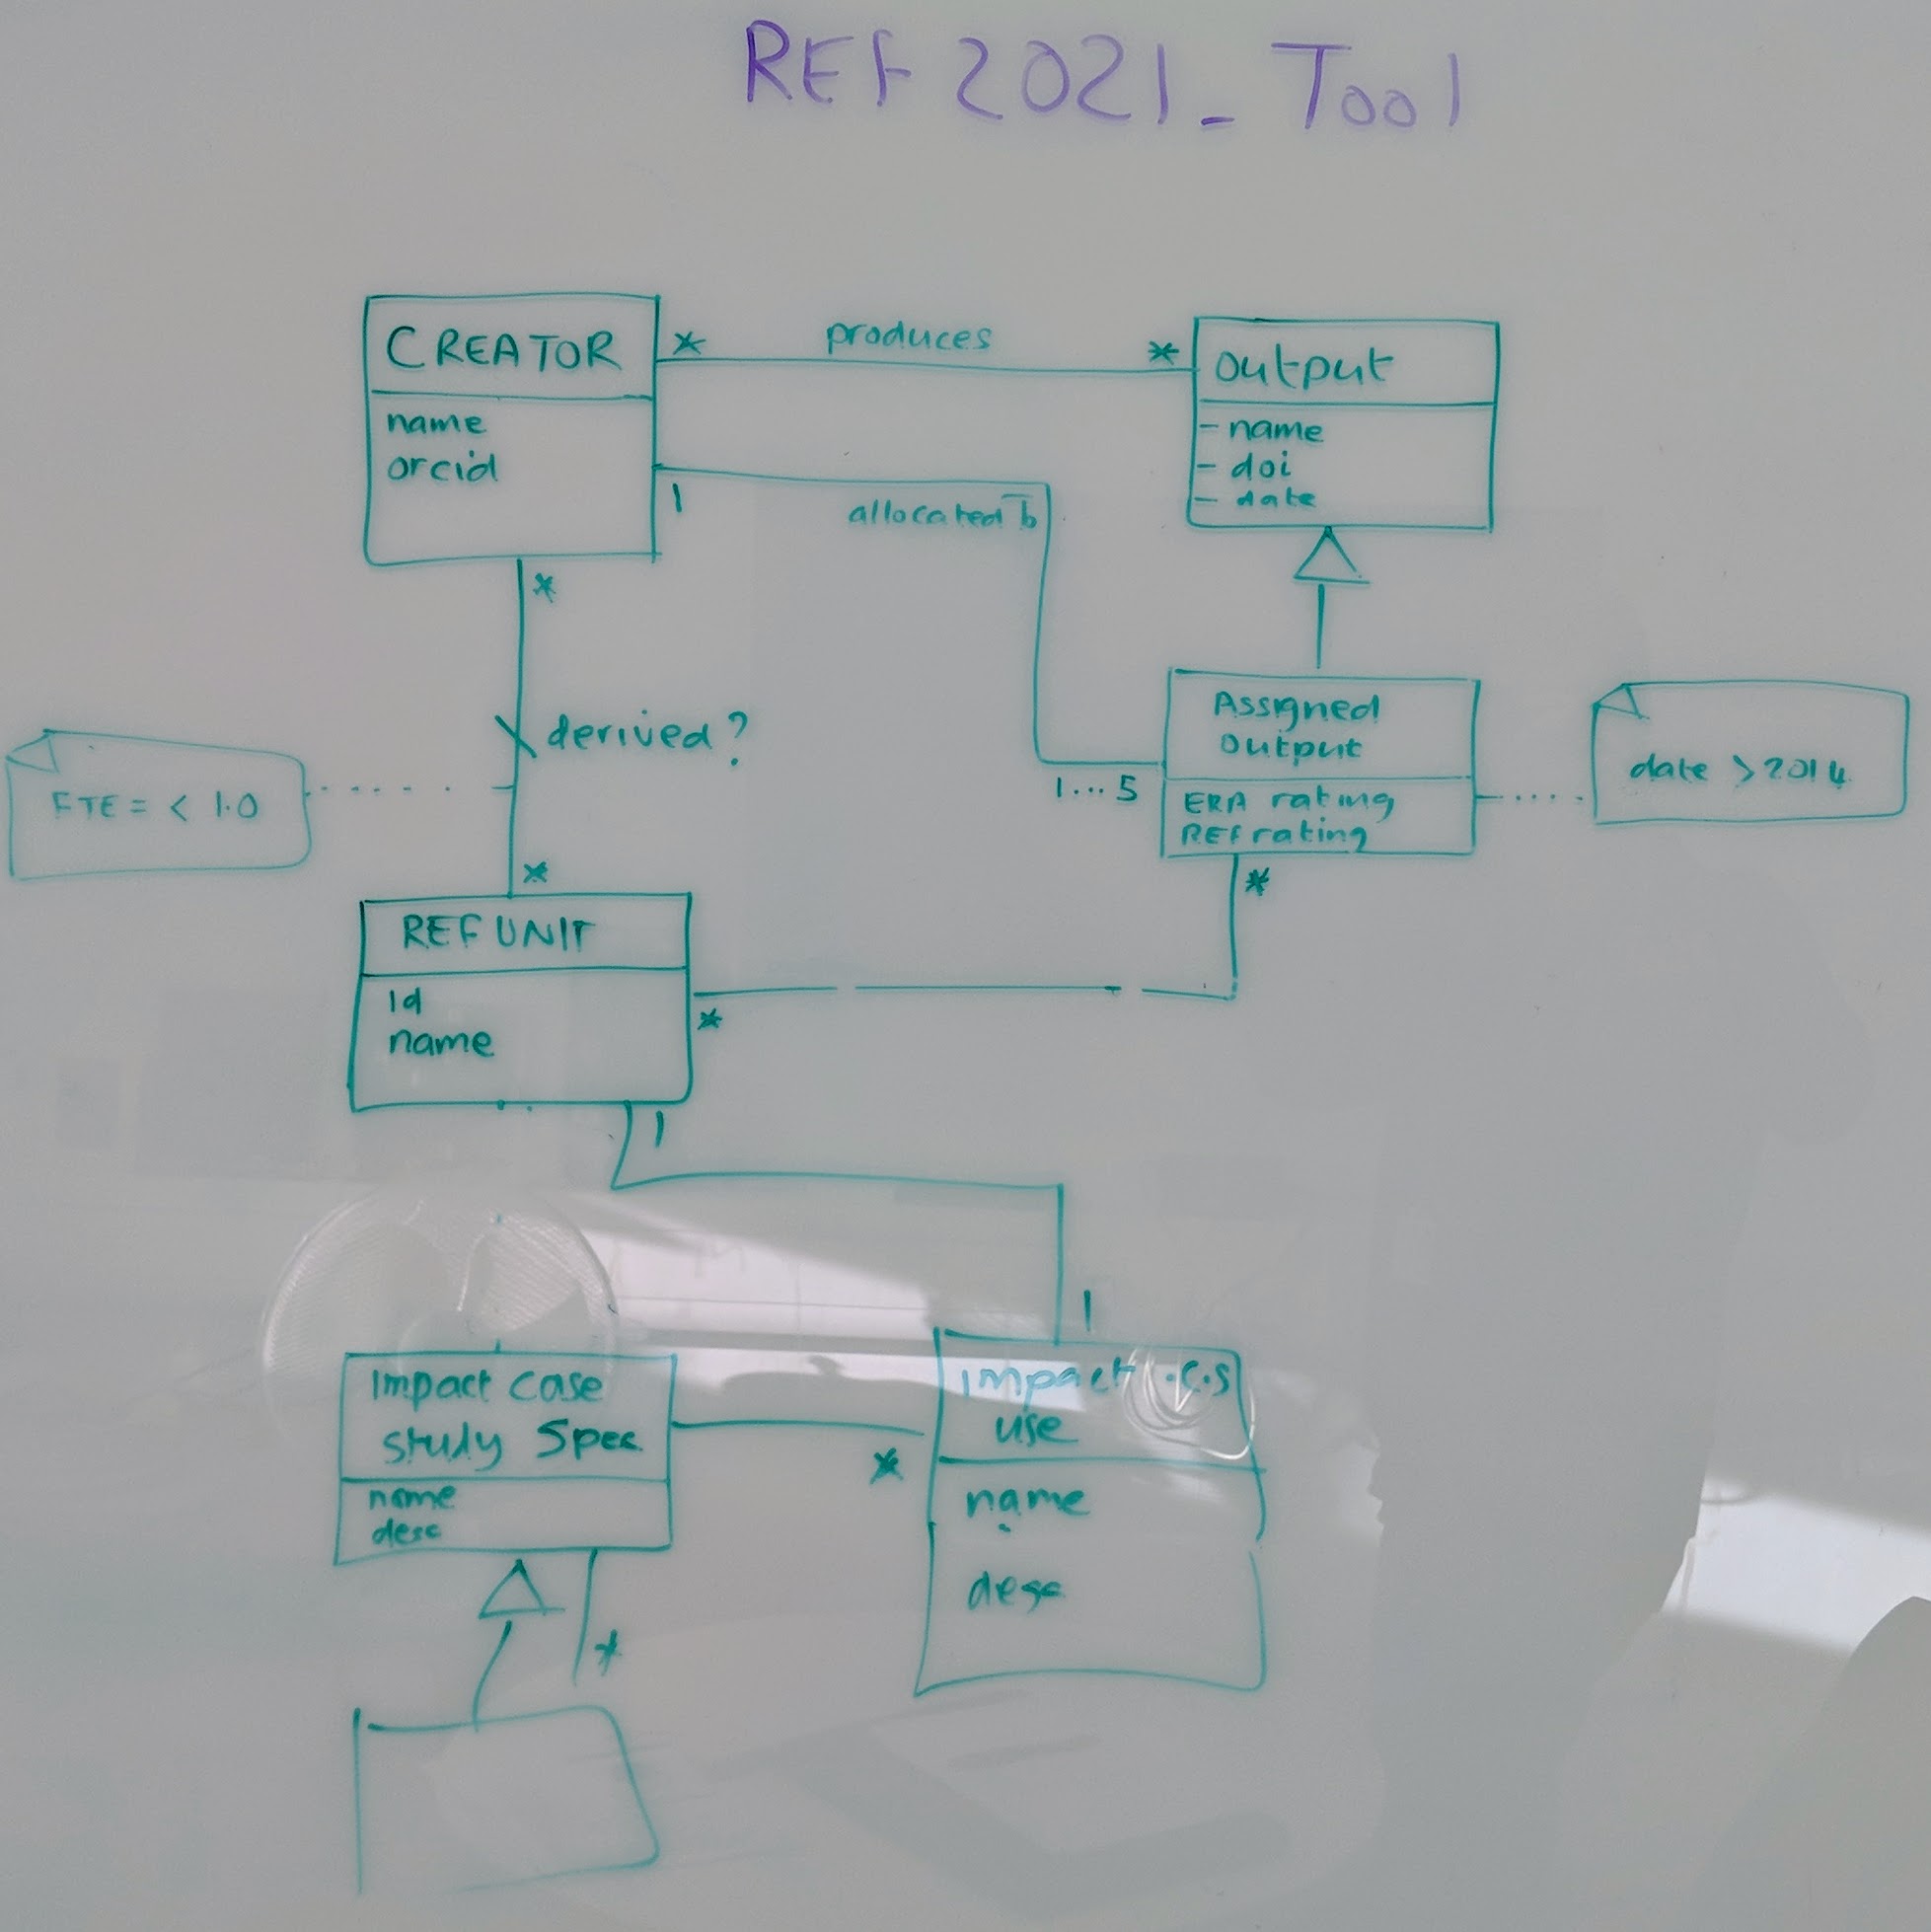 REF 2021_Tool
CREATOR
name
orcid
* produces *
output
- name
- doi
- date
1
allocated to
*
derived?
FTE = < 1.0
*
Assigned
Output
ERA rating
REF rating
1...5
date > 2014
*
REF UNIT
Id
name
*
1
1
Impact case
study Spec
name
desc
*
impact .C.S
use
name
desc
*